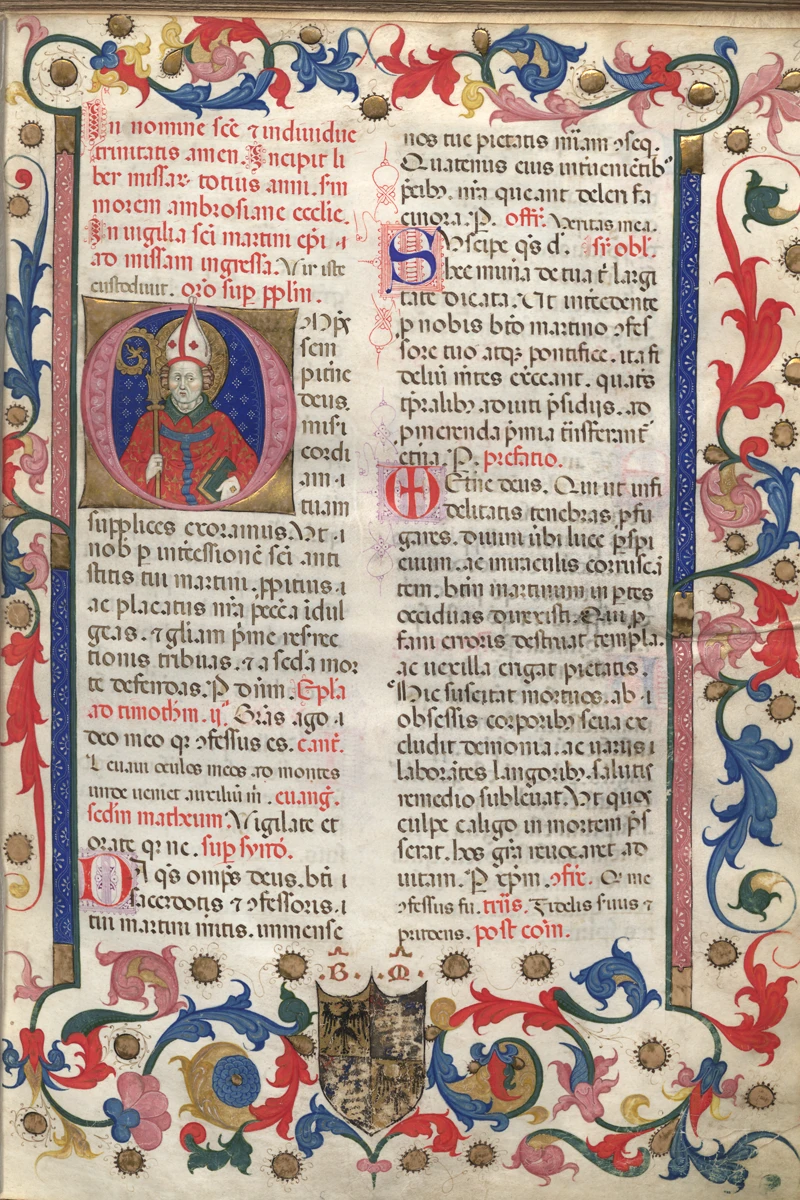 In nomine scē ⁊ indiuidue
trinitatis amen. Incipit li
ber missaꝝ totius anni. sm
morem ambrosiane ecclie.
In uigilia sci martini epi. i
ad missam ingressa. Vir iste
custodiuit. oro sup pplm.
Omps
sem
pitne
deus.
misi
cordi
am. i
tuam
supplices exoramus. Vt. i
nob p intcessionē sci anti
stitis tui martini. ppitius. i
ac placatus nrā peccā idul
geas. ⁊ gliam pme resrec
tionis tribuas. ⁊ a scda mor
te defendas. P dnm. Epla
ad timothm. ij. Grās ago. i
deo meo qr ɔfessus es. cant.
Leuaui oculos meos ad montes
unde ueniet auxiliū m. euang.
scdm matheum. Vigilate et
orate qr ne. sup syndō.
Da qs omps deus. bti i
sacerdotis ⁊ ɔfessoris. i
tui martini mitis. immense
nos tue pietatis miam ɔseq.
Quatenus eius intuenietibꝰ
pcibꝫ. nrā queant deleri fa
cinora. P. offr. Veritas mea.
Suscipe qs d. sr obl.
hec muna de tua t largi
tate dicata. Vt intcedente
p nobis bto martino ɔfes
sore tuo atqꝫ pontifice. ita fi
deliū mtes exceant. quats
tpralibꝫ adiuti psidijs. ad
pmerenda pmia tnsferant
etna. P. prefatio.
Etne deus. Qui ut infi
delitatis tenebras pfu
gares. diuini ubi luce pspi
cuum. ac miraculis corruscā
tem. btm martinum in ptes
occiduas direxisti. Qui p
fani erroris destruat templa.
ac uexilla erigat pietatis.
Hic suscitat mortuos. ab. i
obsessis corporibꝫ seua ex
cludit demonia. ac uariis i
laborātes langoribꝫ. salutis
remedio subleuat. Vt quos
culpe caligo in mortem ps
serat. hos grā reuocaret ad
uitam. P xpm. ɔfrē. Qr me
ɔfessus fu. trns. Fidelis suus ⁊
prudens. post com.
B. M.